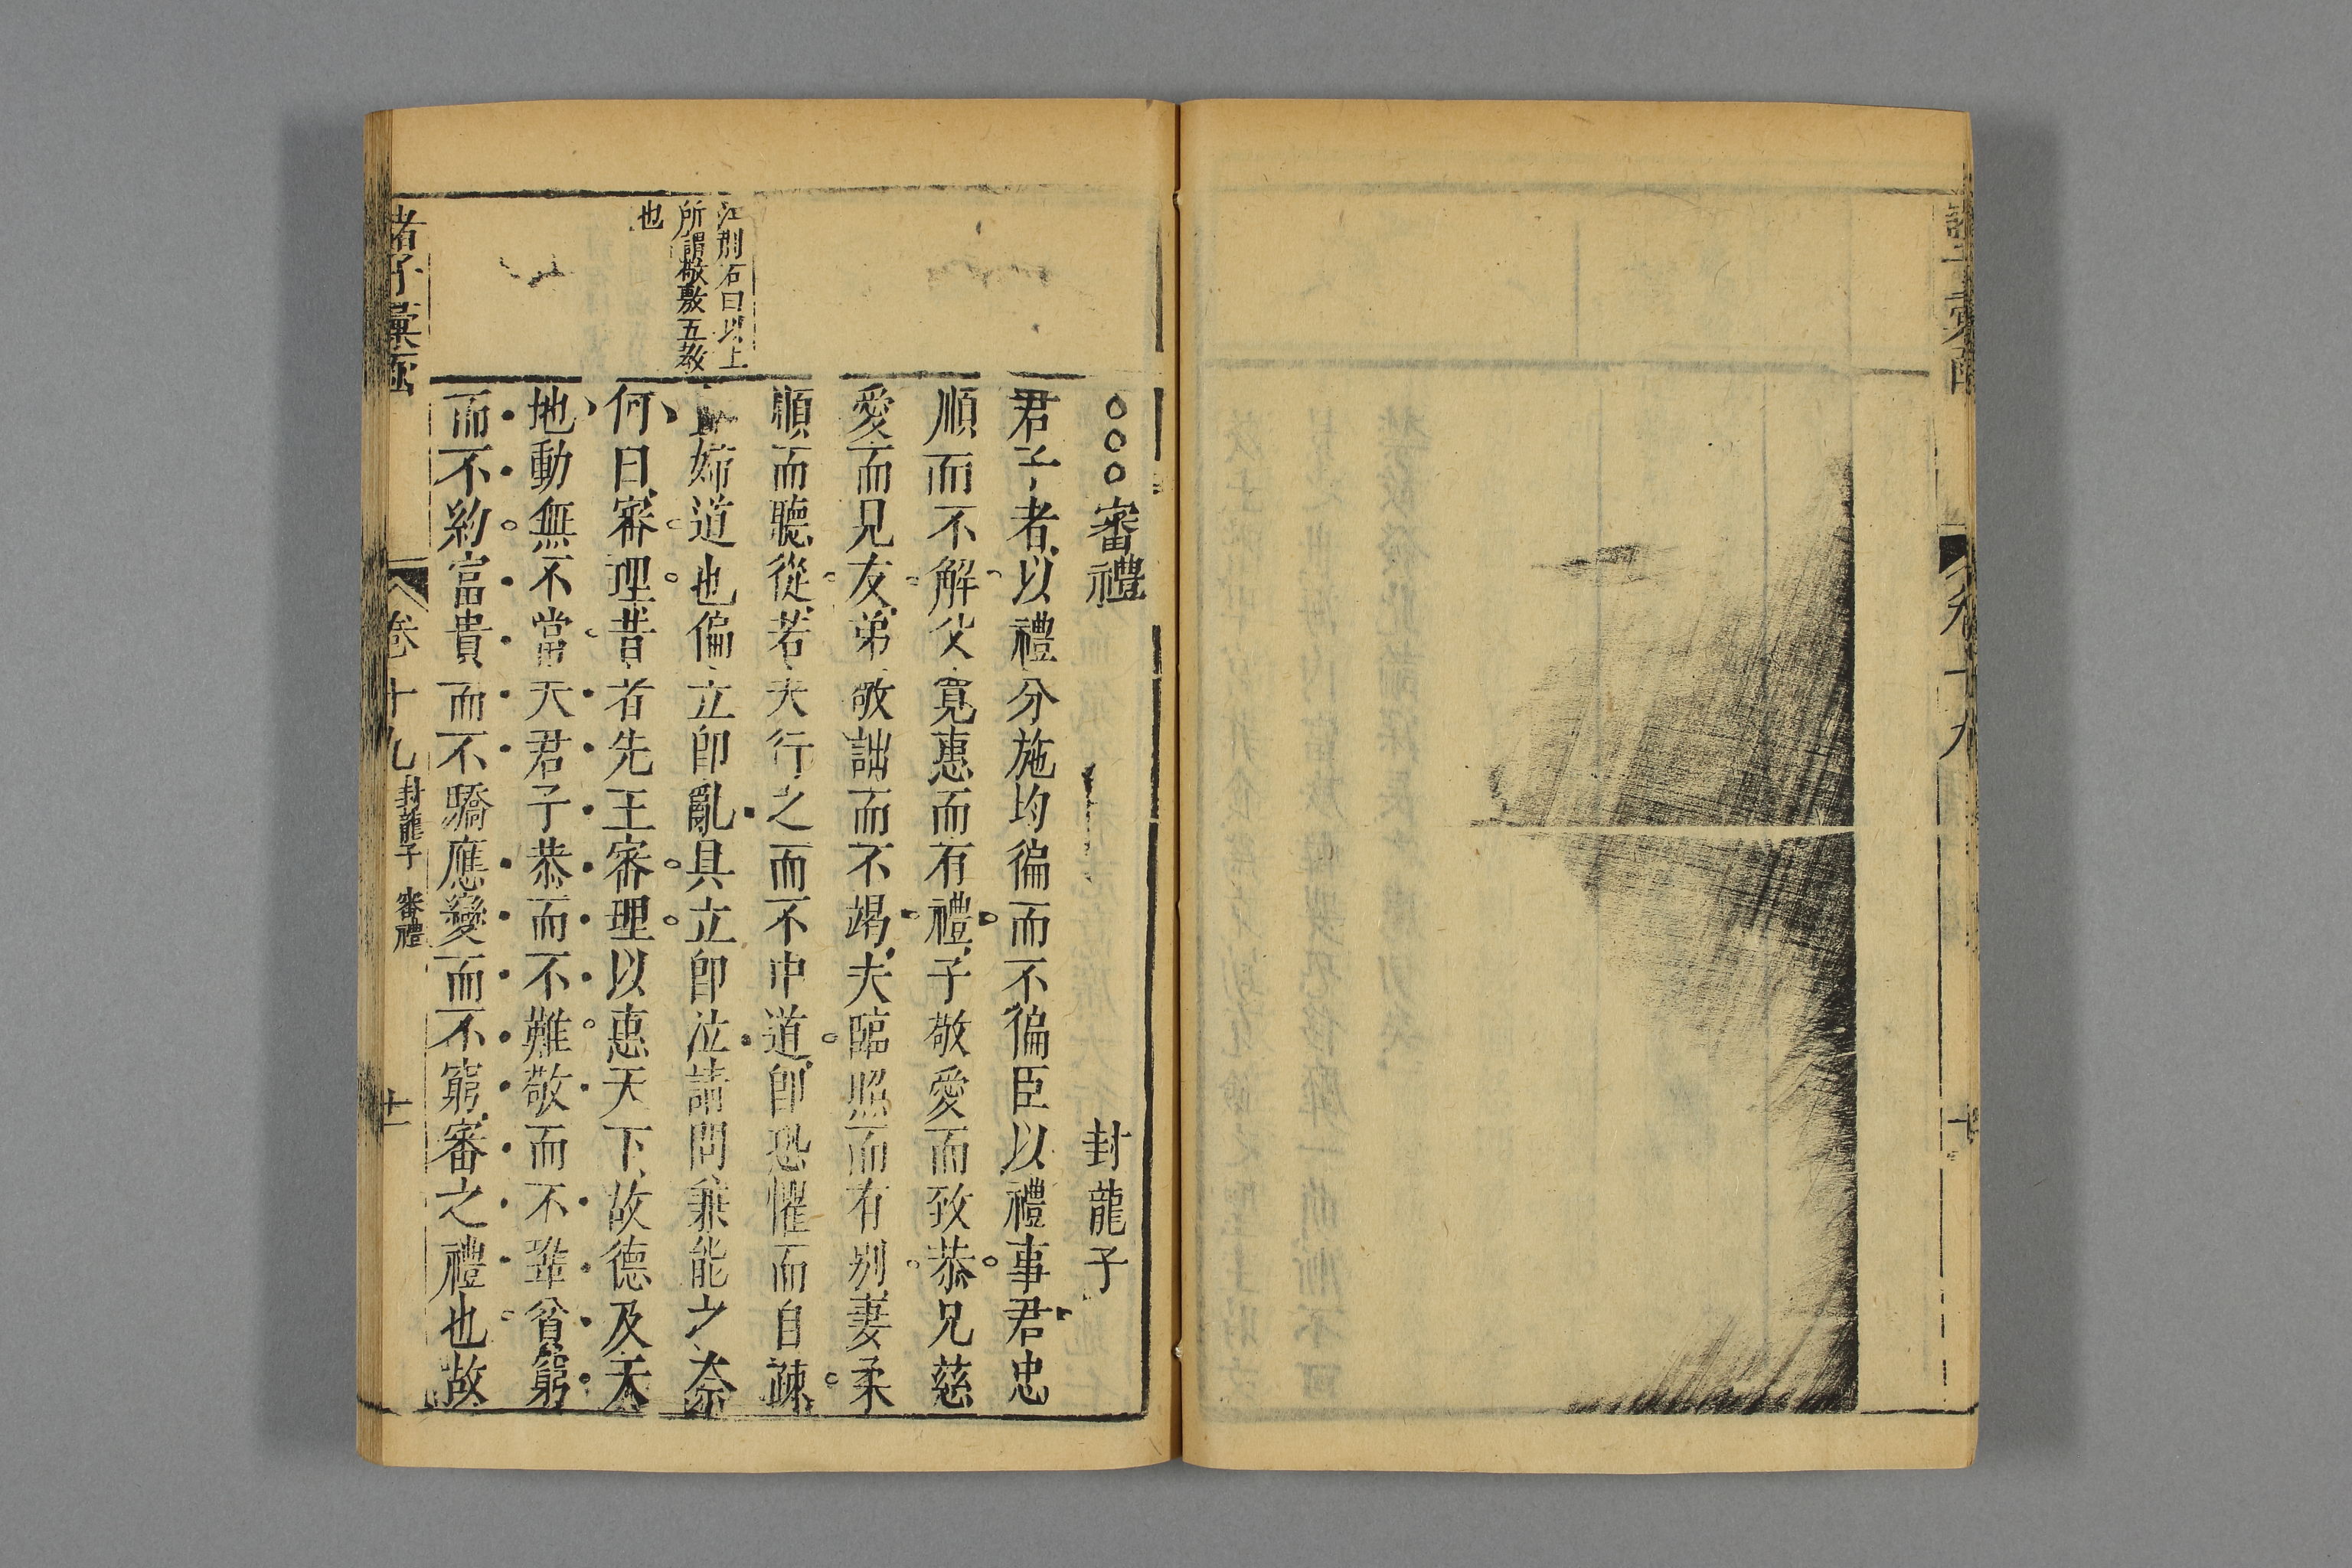 卷十九
十
○○○審禮
封龍子
君子者以禮分施均徧而不徧臣以禮事君忠
順而不解父寬惠而有禮子敬愛而致恭兄慈
愛而見友弟敬詘而不竭夫臨照而有別妻柔
順而聽從若夫行之而不中道卽恐懼而自竦
婦道也偏立卽亂具立卽泣請問兼能之奈
何曰審理昔者先王審理以惠天下故德及天
地動無不當天君子恭而不難敬而不鞏貧窮
而不約富貴而不驕應變而不窮審之禮也故
江荆石曰以上
所謂敬敷五教
也
諸子彙函
卷十九
封龍子 審禮
十一